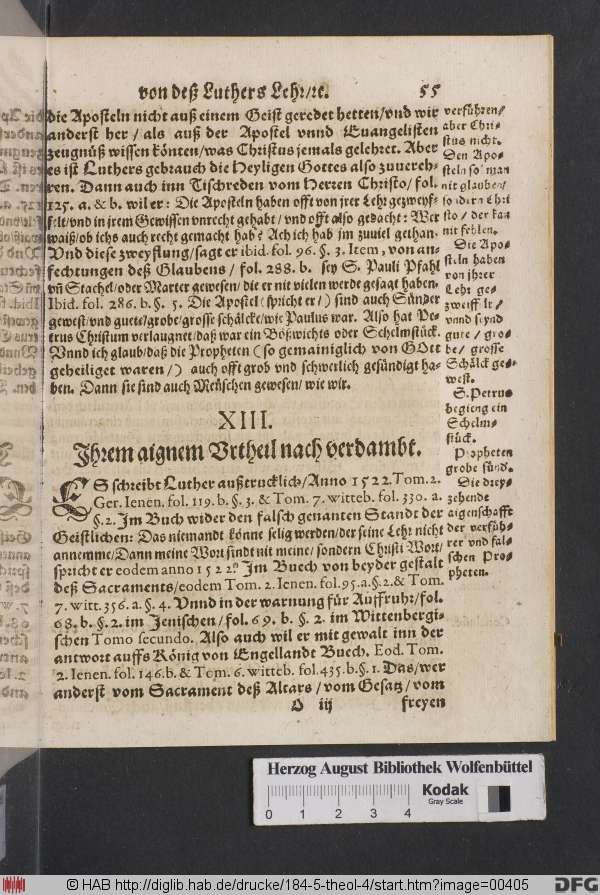 von deß Luthers Lehr/ꝛc. 55
die Aposteln nicht auß einem Geist geredet hetten/vnd wir
anderst her/ als auß der Apostel vnnd Euangelisten
zeugnüß wissen könten/was Christus jemals gelehret. Aber
es ist Luthers gebrauch die Heyligen Gottes also zuuereh-
ren. Dann auch inn Tischreden vom Herren Christo/ fol.
125. a. & b. wil er: Die Aposteln haben offt von jrer Lehr gezweyf-
felt/vnd in jrem Gewissen vnrecht gehabt/ vnd offt also gedacht: Wer
waiß/ob ichs auch recht gemacht hab? Ach ich hab jm zuuiel gethan.
Vnd diese zweyflung/sagt er ibid. fol. 96. §. 3. Item, von an-
fechtungen deß Glaubens/ fol. 288. b. sey S. Pauli Pfahl
vñ Stachel/oder Marter gewesen/ die er nit vielen werde gesagt haben.
Ibid. fol. 286. b. §. 5. Die Apostel (spricht er/) sind auch Sünder
gewest/vnd guete/grobe/grosse schälcke/wie Paulus war. Also hat Pe-
trus Christum verlaugnet/daß war ein Bößwichts oder Schelmstück.
Vnnd ich glaub/daß die Propheten (so gemainiglich von GOtt
geheiliget waren/) auch offt grob vnd schwerlich gesündigt ha-
ben. Dann sie sind auch Menschen gewesen/ wie wir.
verführen/
aber Chri-
stus nicht.
Den Apo-
steln so man
nit glauben/
sondern Chri-
sto/ der kan
nit fehlen.
Die Apo-
steln haben
von jhrer
Lehr ge-
zweiffelt/
vnnd seynd
gute/ gro-
be/ grosse
Schälck ge-
west.
S. Petrus
begieng ein
Schelm-
stück.
Propheten
grobe sünd.
XIII.
Jhrem aignem Vrtheil nach verdambt.
ES schreibt Luther außtrucklich/Anno 1522. Tom. 2.
Ger. Ienen. fol. 119. b. §. 3. & Tom. 7. witteb. fol. 330. a.
§. 2. Jm Buch wider den falsch genanten Standt der
Geistlichen: Das niemandt könne selig werden/der seine Lehr nicht
annemme/Dann meine Wort sindt nit meine/ sondern Christi Wort/
spricht er eodem anno 1522? Jm Buech von beyder gestalt
deß Sacraments/eodem Tom. 2. Ienen. fol. 95. a. §. 2. & Tom.
7. witt. 356. a. §. 4. Vnnd in der warnung für Auffruhr/fol.
68. b. §. 2. im Jenischen/ fol. 69. b. §. 2. im Wittenbergi-
schen Tomo secundo. Also auch wil er mit gewalt inn der
antwort auffs König von Engellandt Buech. Eod. Tom.
2. Ienen. fol. 146. b. & Tom. 6. witteb. fol. 435. b. §. 1. Das/wer
anderst vom Sacrament deß Altars/ vom Gesatz/ vom
Die drey-
zehende
aigenschafft
der verfüh-
rer vnd fal-
schen Pro-
pheten.
O iij freyen
Herzog August Bibliothek Wolfenbüttel
cm 0 1 2 3 4
Kodak
Gray Scale
© HAB http://diglib.hab.de/drucke/184-5-theol-4/start.htm?image=00405
DFG